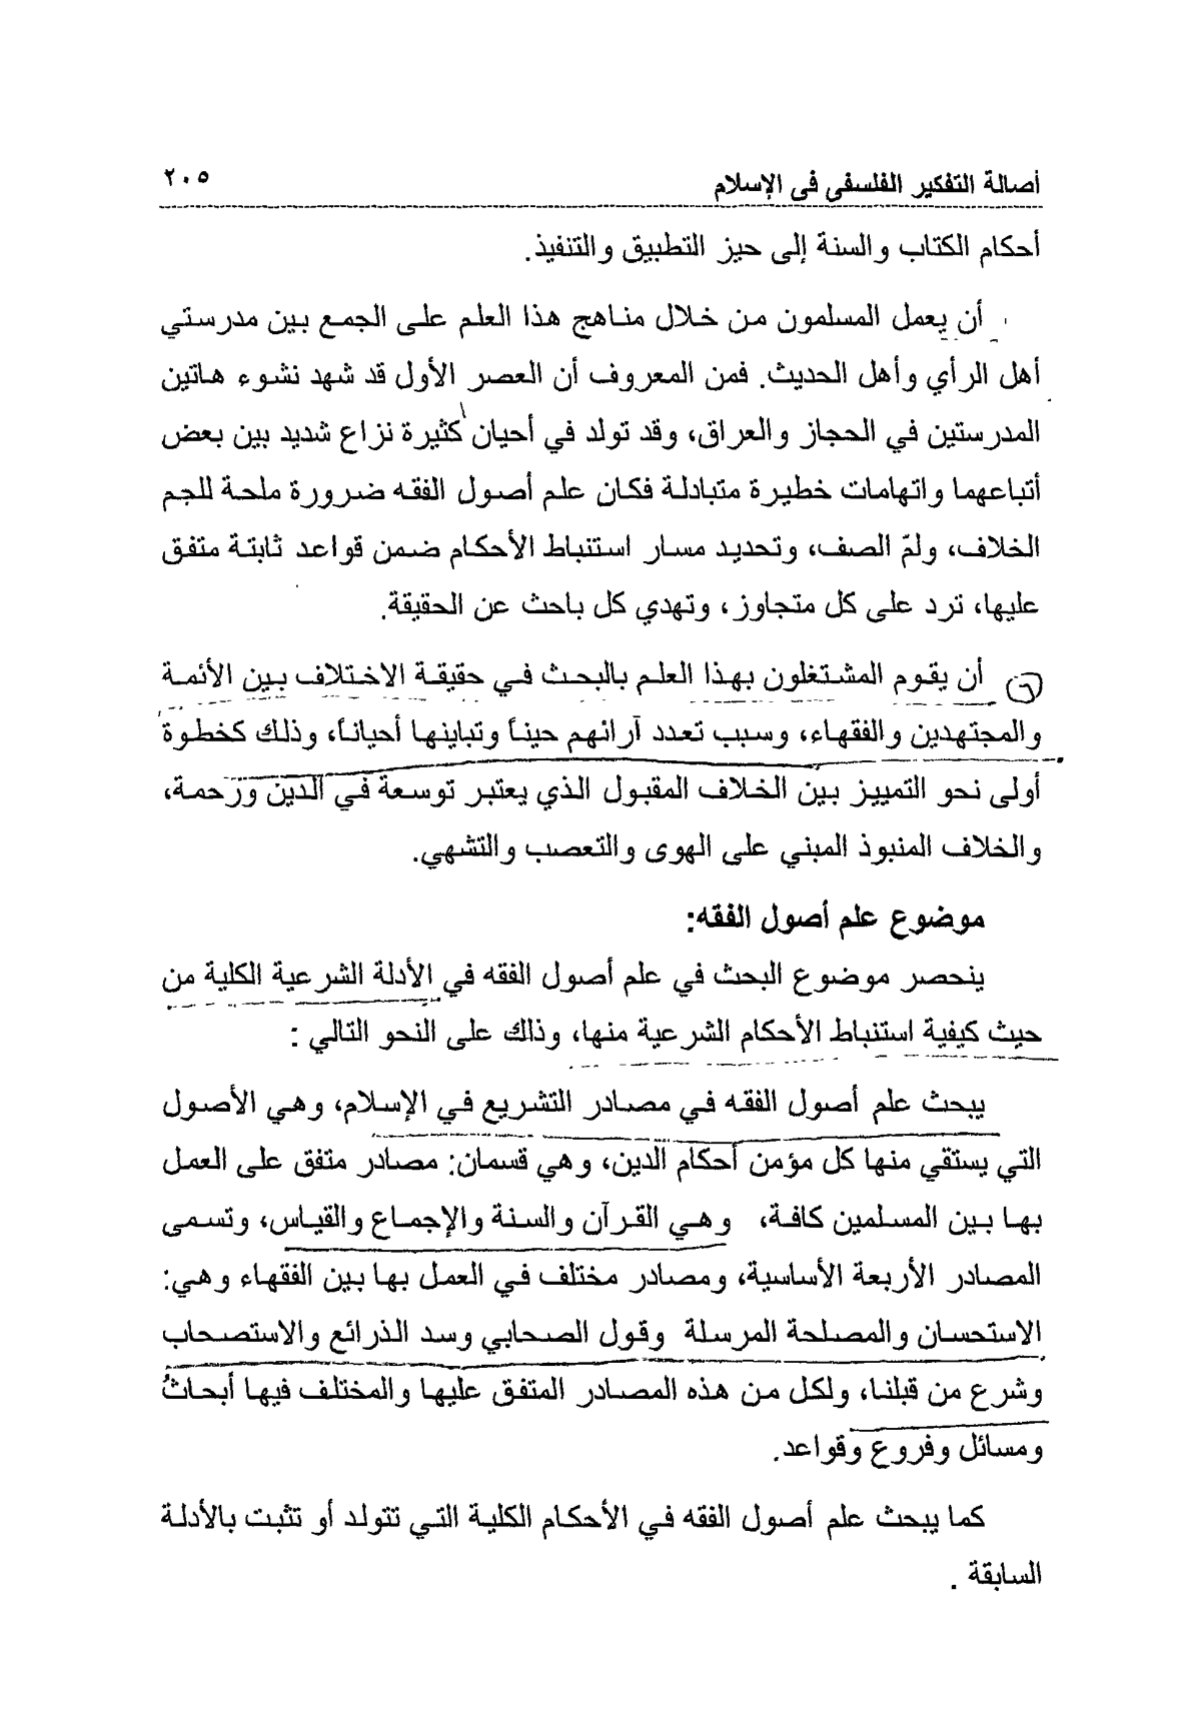 أصالة التفكير الفلسفى فى الإسلام ٢٠٥
أحكام الكتاب والسنة إلى حيز التطبيق والتنفيذ.
أن يعمل المسلمون من خلال مناهج هذا العلم على الجمع بين مدرستي
أهل الرأي وأهل الحديث. فمن المعروف أن العصر الأول قد شهد نشوء هاتين
المدرستين في الحجاز والعراق، وقد تولد في أحيان كثيرة نزاع شديد بين بعض
أتباعهما واتهامات خطيرة متبادلة فكان علم أصول الفقه ضرورة ملحة للجم
الخلاف، ولمّ الصف، وتحديد مسار استنباط الأحكام ضمن قواعد ثابتة متفق
عليها، ترد على كل متجاوز، وتهدي كل باحث عن الحقيقة.
أن يقوم المشتغلون بهذا العلم بالبحث في حقيقة الاختلاف بين الأئمة
والمجتهدين والفقهاء، وسبب تعدد آرائهم حيناً وتباينها أحياناً، وذلك كخطوة
أولى نحو التمييز بين الخلاف المقبول الذي يعتبر توسعة في الدين ورحمة،
والخلاف المنبوذ المبني على الهوى والتعصب والتشهي.
موضوع علم أصول الفقه:
ينحصر موضوع البحث في علم أصول الفقه في الأدلة الشرعية الكلية من
حيث كيفية استنباط الأحكام الشرعية منها، وذلك على النحو التالي :
يبحث علم أصول الفقه في مصادر التشريع في الإسلام، وهي الأصول
التي يستقي منها كل مؤمن أحكام الدين، وهي قسمان: مصادر متفق على العمل
بها بين المسلمين كافة، وهي القرآن والسنة والإجماع والقياس، وتسمى
المصادر الأربعة الأساسية، ومصادر مختلف في العمل بها بين الفقهاء وهي:
الاستحسان والمصلحة المرسلة وقول الصحابي وسد الذرائع والاستصحاب
وشرع من قبلنا، ولكل من هذه المصادر المتفق عليها والمختلف فيها أبحاثُ
ومسائل وفروع وقواعد.
كما يبحث علم أصول الفقه في الأحكام الكلية التي تتولد أو تثبت بالأدلة
السابقة .